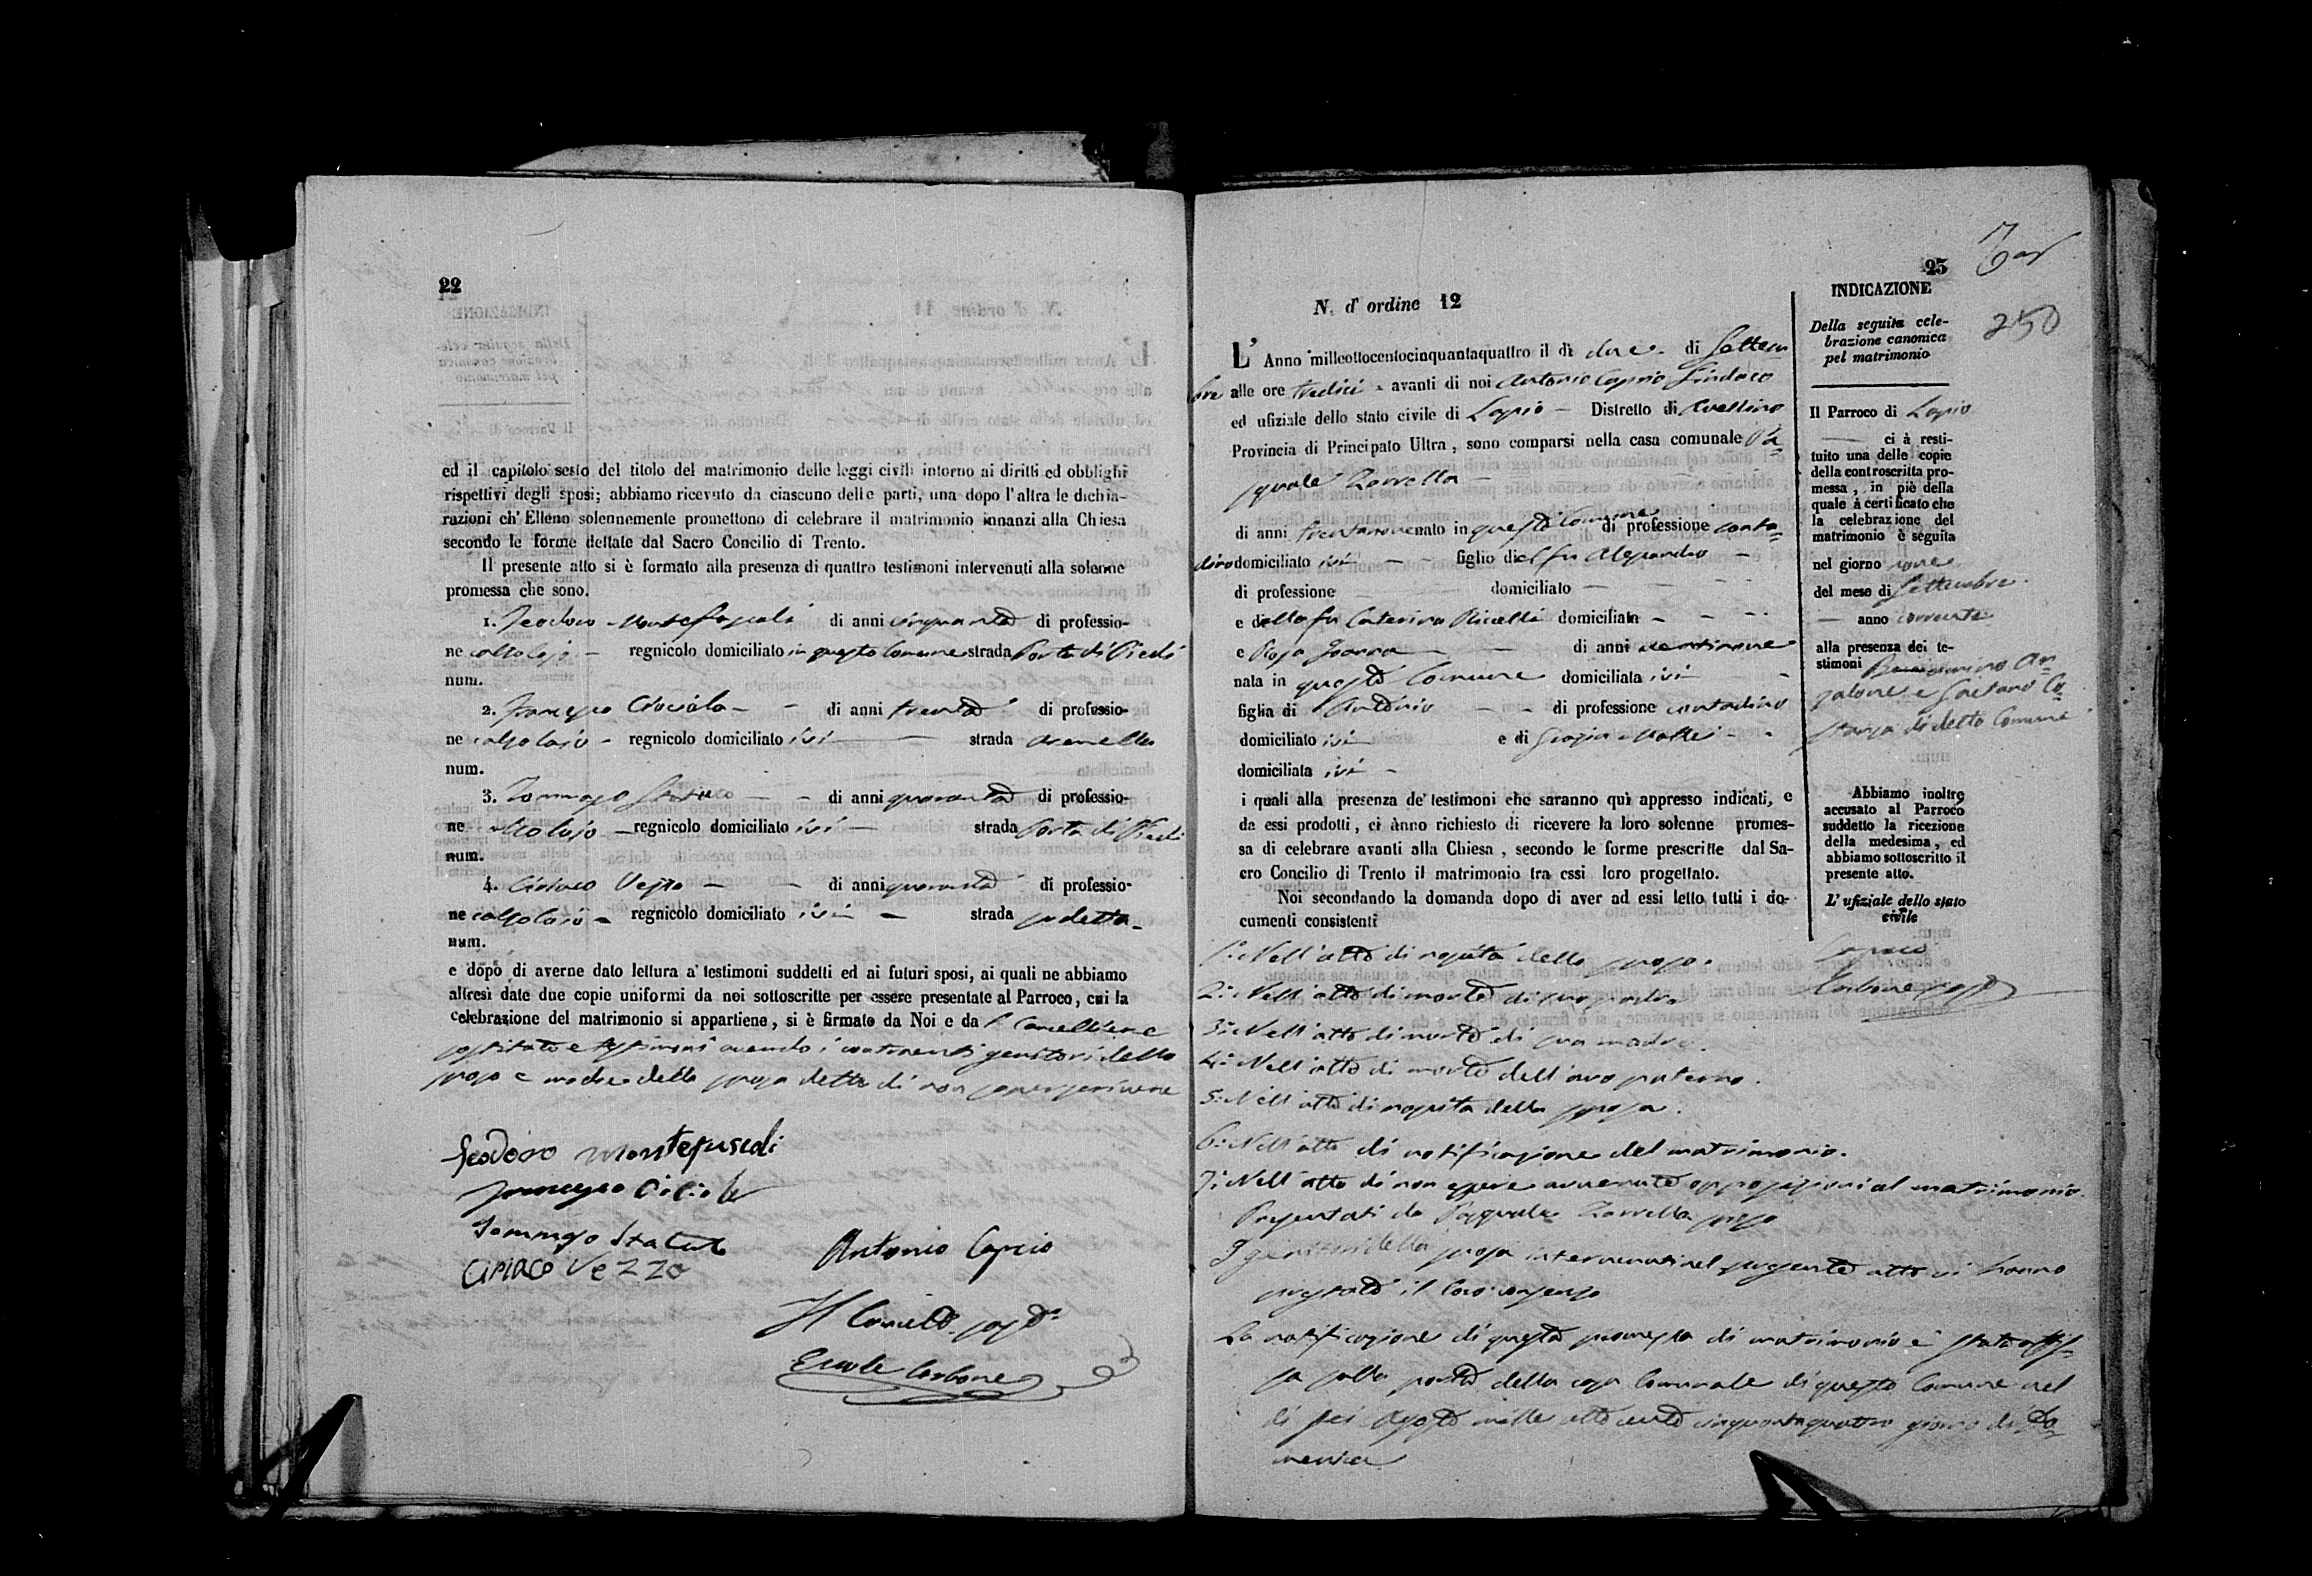 22
ed il capitolo sesto del titolo del matrimonio delle leggi civili intorno ai diritti ed obblighi
rispettivi degli sposi; abbiamo ricevuto da ciascuno delle parti, una dopo l'altra le dichia-
razioni ch' Elleno solennemente promettono di celebrare il matrimonio innanzi alla Chiesa
secondo le forme dettate dal Sacro Concilio di Trento.
Il presente atto si è formato alla presenza di quattro testimoni intervenuti alla solenne
promessa che sono.
1. Teodoro Montefuscoli di anni cinquanta di professio-
ne calzolajo - regnicolo domiciliato in questo Comune strada Porta di Piedi
num.
2. Francesco Ciociola - - di anni trenta di professio-
ne calzolajo - regnicolo domiciliato ivi strada
num.
3. Tommaso Statuto - - di anni quaranta di professio-
ne calzolajo - regnicolo domiciliato ivi - strada Porta di Piedi
num.
4. Ciriaco Vezzo - - di anni quaranta di professio-
ne calzolajo - regnicolo domiciliato ivi - strada sudetta -
num.
e dopo di averne dato lettura a' testimoni suddetti ed ai futuri sposi, ai quali ne abbiamo
altresì date due copie uniformi da noi sottoscritte per essere presentate al Parroco, cui la
celebrazione del matrimonio si appartiene, si è firmato da Noi e da l Cancelliere
sostituto e testimoni avendo i contraenti genitori dello
sposo e madre della sposa detto di non saper scrivere
Teodoro Montefuscoli
Francesco Ciociola
Tommaso Statuto
Ciriaco Vezzo
Antonio Caprio
Il Cancell. sost.
Ercole Carbone
23
250
N. d' ordine 12
L' Anno milleottocentocinquantaquattro il dì due - di Settem
bre alle ore tredici - avanti di noi Antonio Caprio Sindaco
ed ufiziale dello stato civile di Lapio - Distretto di Avellino
Provincia di Principato Ultra, sono comparsi nella casa comunale Pa=
squale Zarrella -
di anni trentanove nato in questo Comune di professione conta=
dino domiciliato ivi - - figlio del fu Alesandro -
di professione domiciliato -
e della fu Caterina Ricelli domiciliata - - -
e Rosa - - di anni ventinove
nata in questo Comune domiciliata ivi -
figlia di Antonio - - di professione contadino
domiciliato ivi e di Grazia Mattei - -
domiciliata ivi -
i quali alla presenza de' testimoni che saranno quì appresso indicati, e
da essi prodotti, ci ànno richiesto di ricevere la loro solenne promes-
sa di celebrare avanti alla Chiesa, secondo le forme prescritte dal Sa-
cro Concilio di Trento il matrimonio tra essi loro progettato.
Noi secondando la domanda dopo di aver ad essi letto tutti i do-
cumenti consistenti
1: Nell'atto di nascita dello sposo.
2: Nell'atto di morte di suo padre
3: Nell'atto di morte di sua madre.
4: Nell'atto di morte dell'avo paterno.
5: Nell'atto di nascita della sposa.
6: Nell'atto di notificazione del matrimonio.
7: Nell'atto di non essere avvenute opposizioni al matrimonio.
Presentati da Pasquale Zarrella sposo
I genitori della sposa intervenuti nel presente atto vi hanno
prestato il loro consenso
La notificazione di questa promessa di matrimonio è stata affis=
sa sulla porta della casa Comunale di questo Comune nel
dì sei Agosto mille otto cento cinquantaquattro giorno di Do=
menica
INDICAZIONE
Della seguita cele-
brazione canonica
pel matrimonio
Il Parroco di Lapio
ci à resti-
tuito una delle copie
della controscritta pro-
messa, in piè della
quale à certificato che
la celebrazione del
matrimonio è seguita
nel giorno nove
del mese di Settembre
- anno corrente
alla presenza dei te-
stimoni Beniamino An=
zalone e Gaetano Co=
stanza di detto Comune
Abbiamo inoltre
accusato al Parroco
suddetto la ricezione
della medesima, ed
abbiamo sottoscritto il
presente atto.
L' ufiziale dello stato
civile
Caprio
Carbone sost.